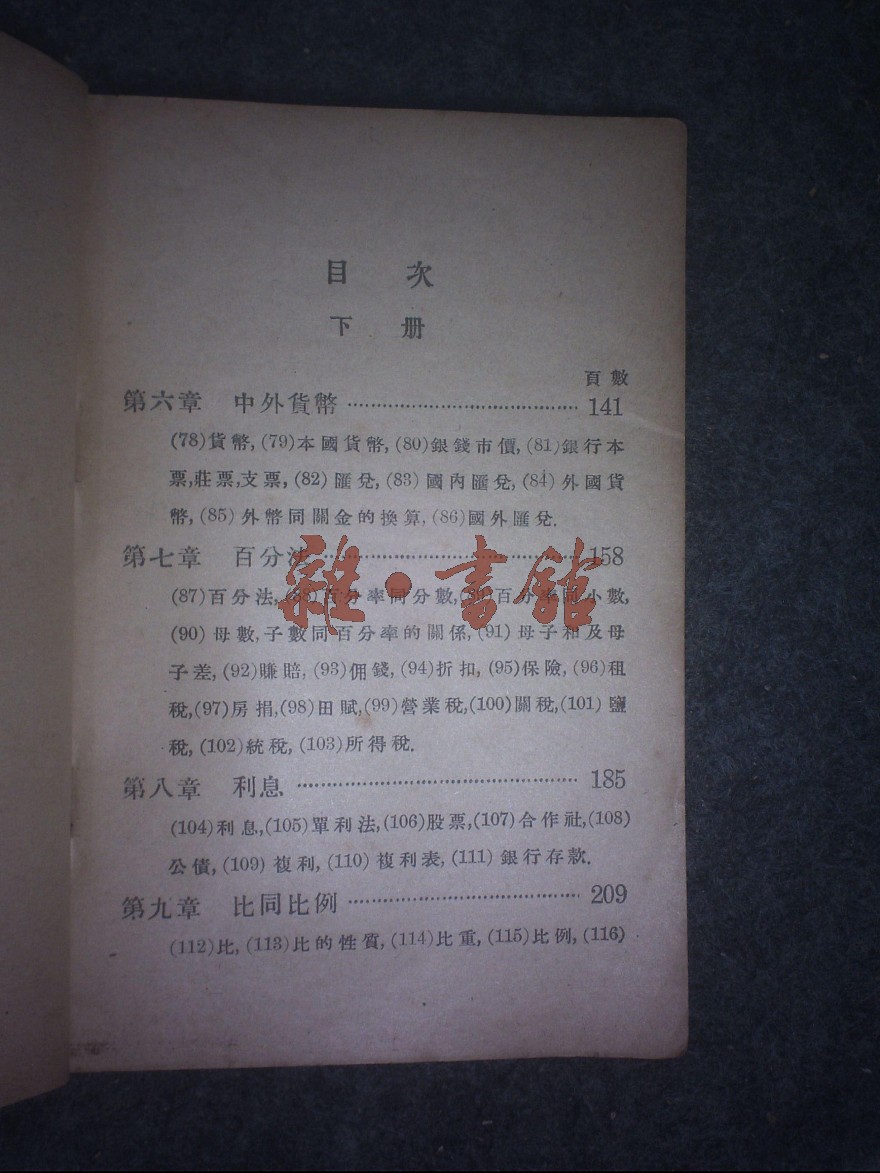 目次
下册
頁數
第六章 中外貨幣 ……………………………… 141
(78)貨幣,(79)本國貨幣,(80)銀錢市價,(81)銀行本
票,莊票,支票,(82)匯兌,(83)國內匯兌,(84)外國貨
幣,(85)外幣同關金的換算,(86)國外匯兌.
第七章 百分法 ……………………………… 158
(87)百分法,(88)百分率同分數,(89)百分率同小數,
(90)母數,子數同百分率的關係,(91)母子和及母
子差,(92)賺賠,(93)佣錢,(94)折扣,(95)保險,(96)租
稅,(97)房捐,(98)田賦,(99)營業稅,(100)關稅,(101)鹽
稅,(102)統稅,(103)所得稅.
第八章 利息 ……………………………… 185
(104)利息,(105)單利法,(106)股票,(107)合作社,(108)
公債,(109)複利,(110)複利表,(111)銀行存款.
第九章 比同比例 ……………………………… 209
(112)比,(113)比的性質,(114)比重,(115)比例,(116)
雜·書館